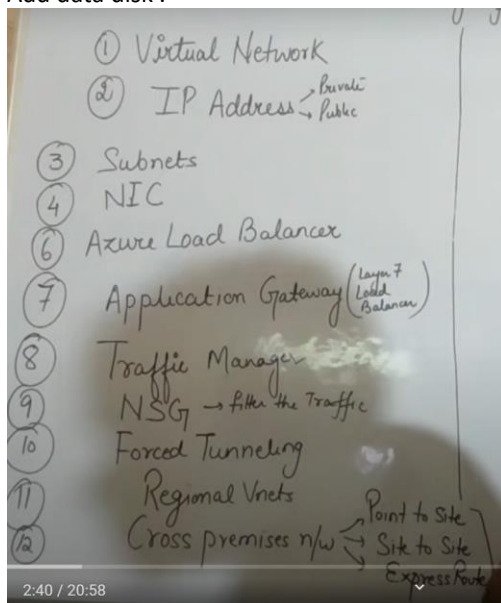 Add data disk :
① Virtual Network
② IP Address → Private
→ Public
③ Subnets
④ NIC
⑥ Azure Load Balancer
⑦ Application Gateway (Layer 7
Load
Balancer)
⑧ Traffic Manager
⑨ NSG → filter the Traffic
⑩ Forced Tunneling
⑪ Regional Vnets
⑫ Cross premises n/w → Point to Site
→ Site to Site
→ Express Route
2:40 / 20:58